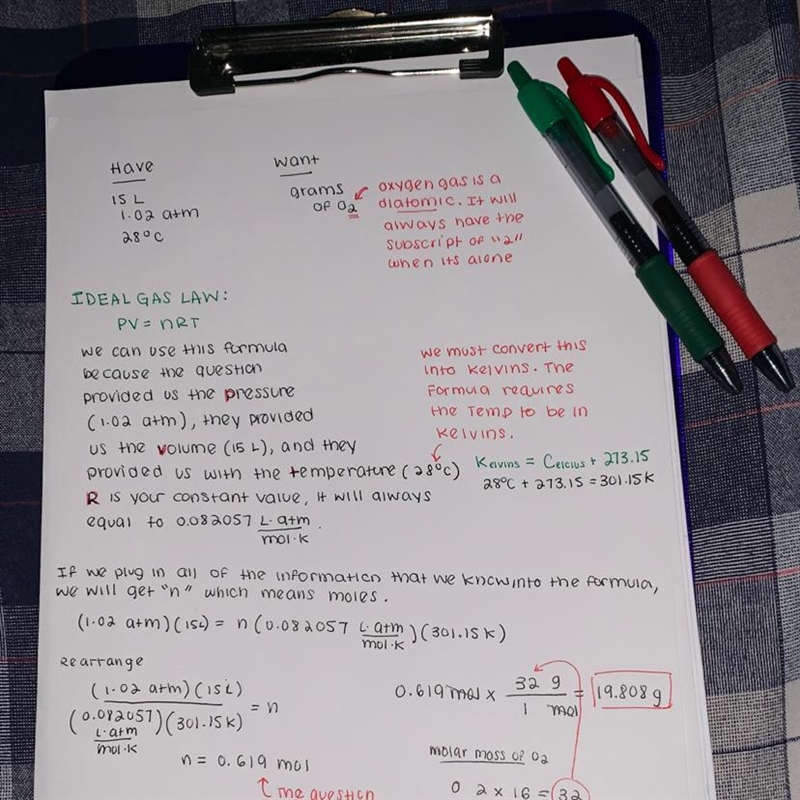 Have
15 L
1.02 atm
28°C
Want
grams
of O2
oxygen gas is a
diatomic. It will
always have the
subscript of "2"
when its alone
IDEAL GAS LAW:
PV = nRT
we can use this formula
because the question
provided us the pressure
(1.02 atm), they provided
us the volume (15 L), and they
provided us with the temperature (28°C)
R is your constant value, it will always
equal to 0.082057 L·atm/mol·K.
we must convert this
into Kelvins. The
Formula requires
the Temp to be in
Kelvins.
Kelvins = Celcius + 273.15
28°C + 273.15 = 301.15K
If we plug in all of the information that we know into the formula,
we will get "n" which means moles.
(1.02 atm)(15L) = n(0.082057 L·atm/mol·K)(301.15K)
rearrange
(1.02 atm)(15L)/(0.082057 L·atm/mol·K)(301.15K) = n
n = 0.619 mol
the question
0.619 mol x 32 g/1 mol = 19.808 g
molar mass of O2
O 2 x 16 = 32